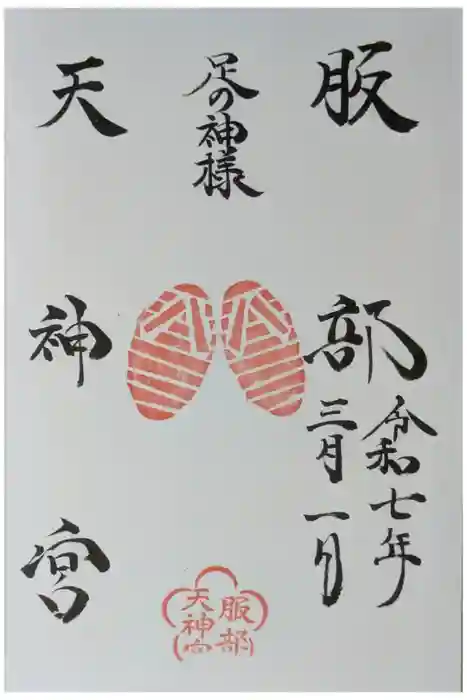 服部
令和七年
三月一日
足の神様
天神宮
服部
天神宮